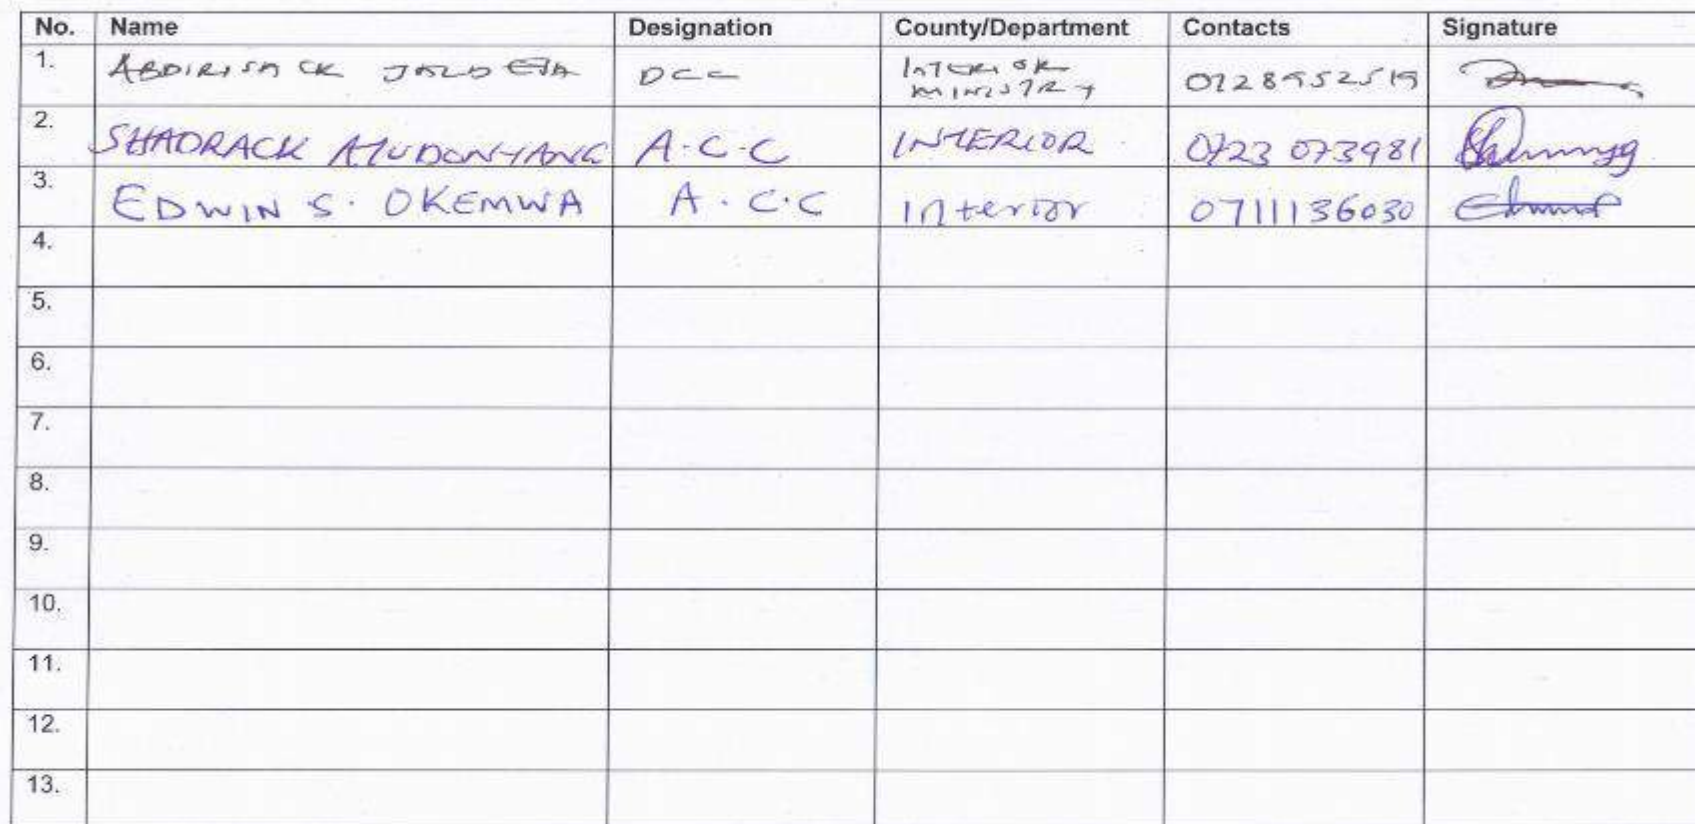 No. Name Designation County/Department Contacts Signature
1. ABDIRISACK JALDESA DCC INTERIOR MINISTRY 0728952519
2. SHADRACK A.C.C INTERIOR 0723 073981
3. EDWIN S. OKEMWA A.C.C Interior 0711136030
4.
5.
6.
7.
8.
9.
10.
11.
12.
13.